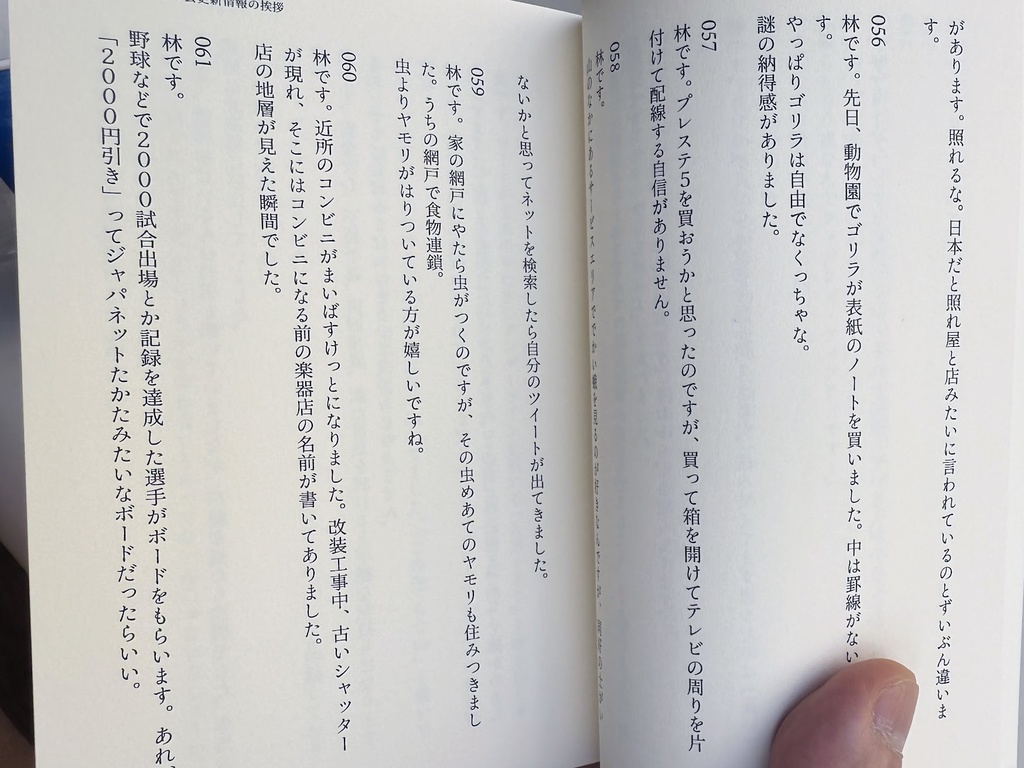 があります。照れるな。日本だと照れ屋と店みたいに言われているのとずいぶん違いま
す。
056
林です。先日、動物園でゴリラが表紙のノートを買いました。中は罫線がない
す。
やっぱりゴリラは自由でなくっちゃな。
謎の納得感がありました。
057
林です。プレステ5を買おうかと思ったのですが、買って箱を開けてテレビの周りを片
付けて配線する自信がありません。
058
林です。
山のなかにあるサービスエリアででかい蛾を見るのが好きなんですが、
ないかと思ってネットを検索したら自分のツイートが出てきました。
059
林です。家の網戸にやたら虫がつくのですが、その虫めあてのヤモリも住みつきまし
た。うちの網戸で食物連鎖。
虫よりヤモリがはりついている方が嬉しいですね。
060
林です。近所のコンビニがまいばすけっとになりました。改装工事中、古いシャッター
が現れ、そこにはコンビニになる前の楽器店の名前が書いてありました。
店の地層が見えた瞬間でした。
061
林です。
野球などで2000試合出場とか記録を達成した選手がボードをもらいます。あれ、
「2000円引き」ってジャパネットたかたみたいなボードだったらいい。
更新情報の挨拶